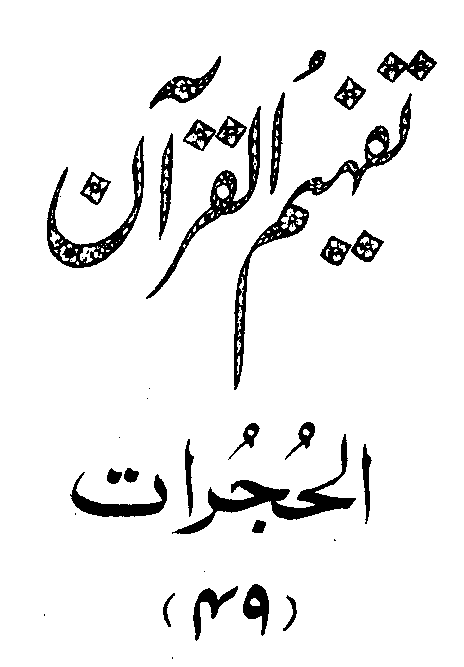 تفہیمُ القرآن
الحُجُرات
(۴۹)